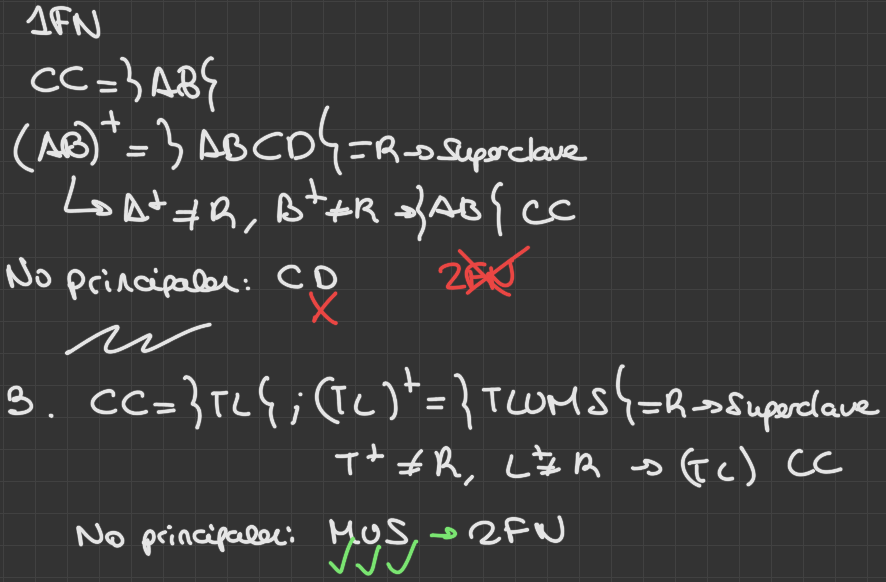 1FN
CC = }AB{
(AB)⁺ = }ABCD{ = R → Superclave
↳ A⁺ ≠ R, B⁺ ≠ R → }AB{ CC
No principales: CD 2FN
X
3. CC = }TL{ ; (TL)⁺ = }TLUMS{ = R → Superclave
T⁺ ≠ R, L⁺ ≠ R → (TL) CC
No principales: MUS → 2FN
✓✓✓